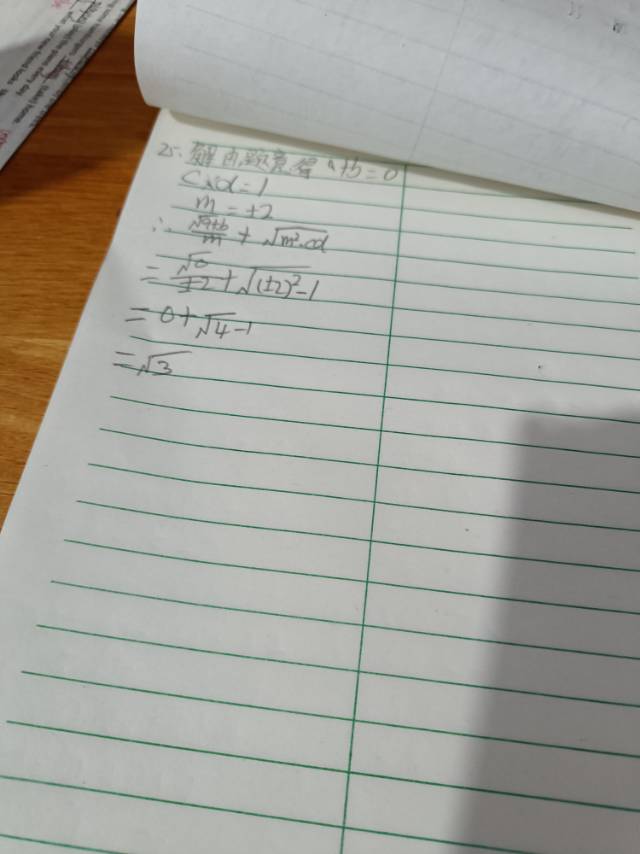 25. 解 由题意得 a+b=0
C×d=1
m=±2
∴ √a+b/m + √m²-cd
= √0/±2 + √(±2)²-1
= 0+√4-1
=√3